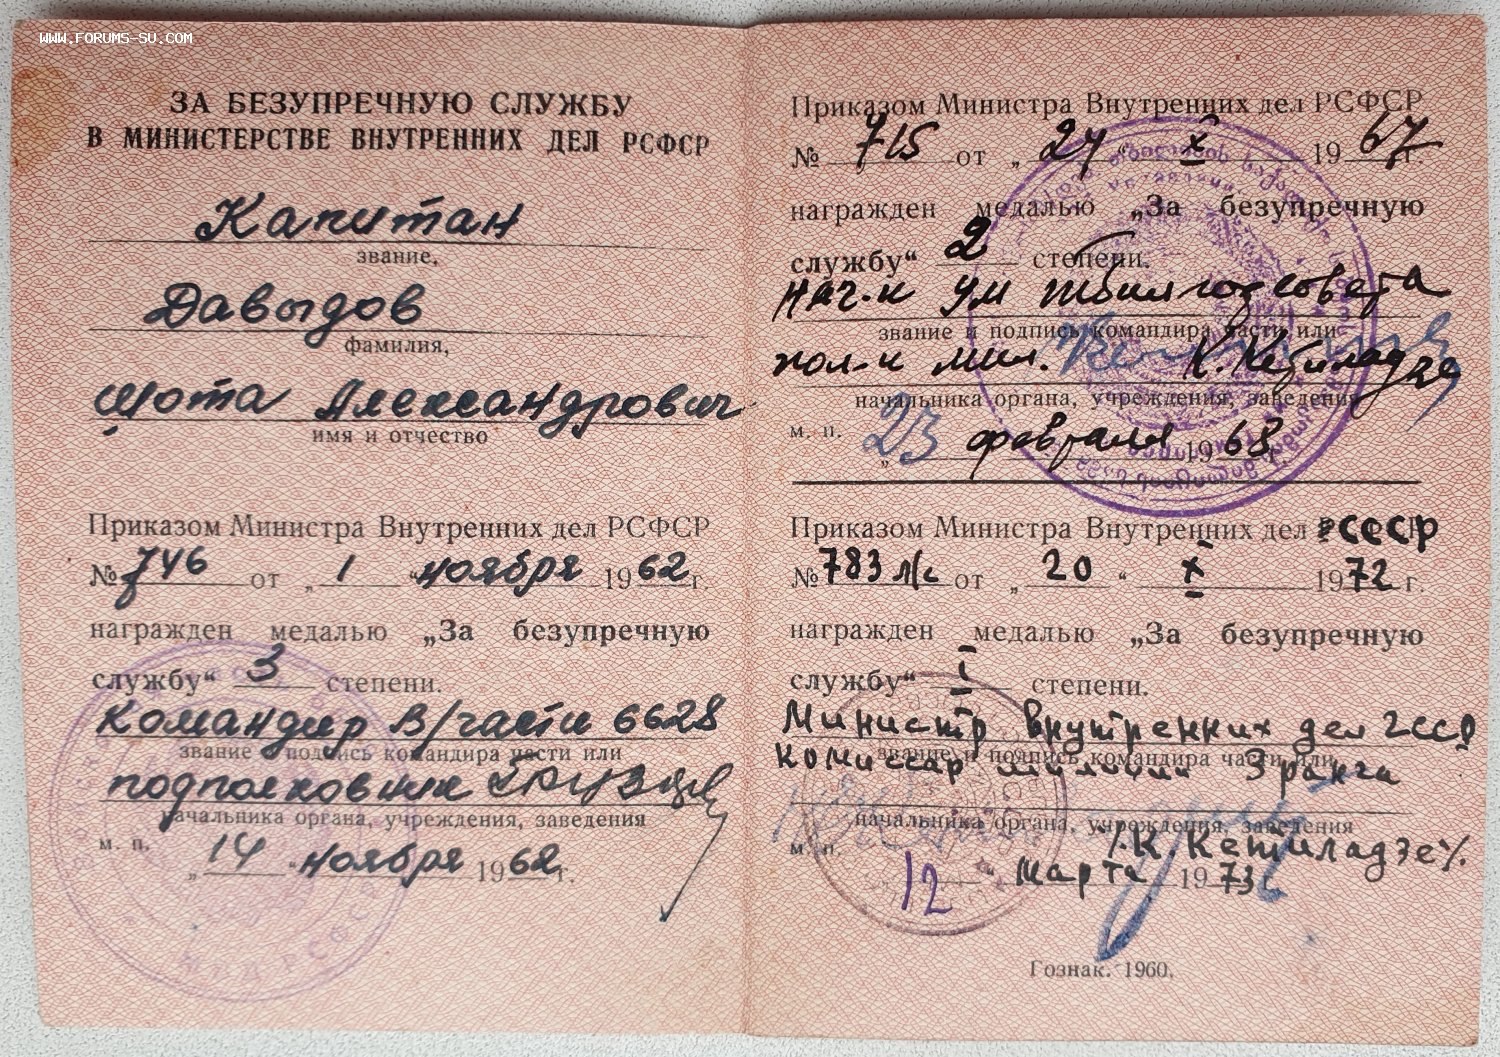 WWW.FORUMS-SU.COM
ЗА БЕЗУПРЕЧНУЮ СЛУЖБУ
В МИНИСТЕРСТВЕ ВНУТРЕННИХ ДЕЛ РСФСР
Капитан
звание,
Давыдов
фамилия,
Шота Александрович
имя и отчество
Приказом Министра Внутренних дел РСФСР
№ 746 от „ 1 “ ноября 1962 г.
награжден медалью „За безупречную
службу“ 3 степени.
Командир в/части 6628
звание и подпись командира части или
подполковник
начальника органа, учреждения, заведения
м. п.
„ 14 “ ноября 1962 г.
Приказом Министра Внутренних дел РСФСР
№ 715 от „ 27 “ X 1967 г.
награжден медалью „За безупречную
службу“ 2 степени.
Нач-к УМ Тбилгорсовета
звание и подпись командира части или
пол-к мил. К. Кетиладзе
начальника органа, учреждения, заведения
м. п.
„ 23 февраля 1968
Приказом Министра Внутренних дел СССР
№ 783 л/с от „ 20 “ X 1972 г.
награжден медалью „За безупречную
службу“ I степени.
Министр внутренних дел ГССР
звание и подпись командира части или
комиссар милиции 3 ранга
начальника органа, учреждения, заведения
/К Кетиладзе/.
м. п.
12 “ марта 1973 г.
Гознак. 1960.